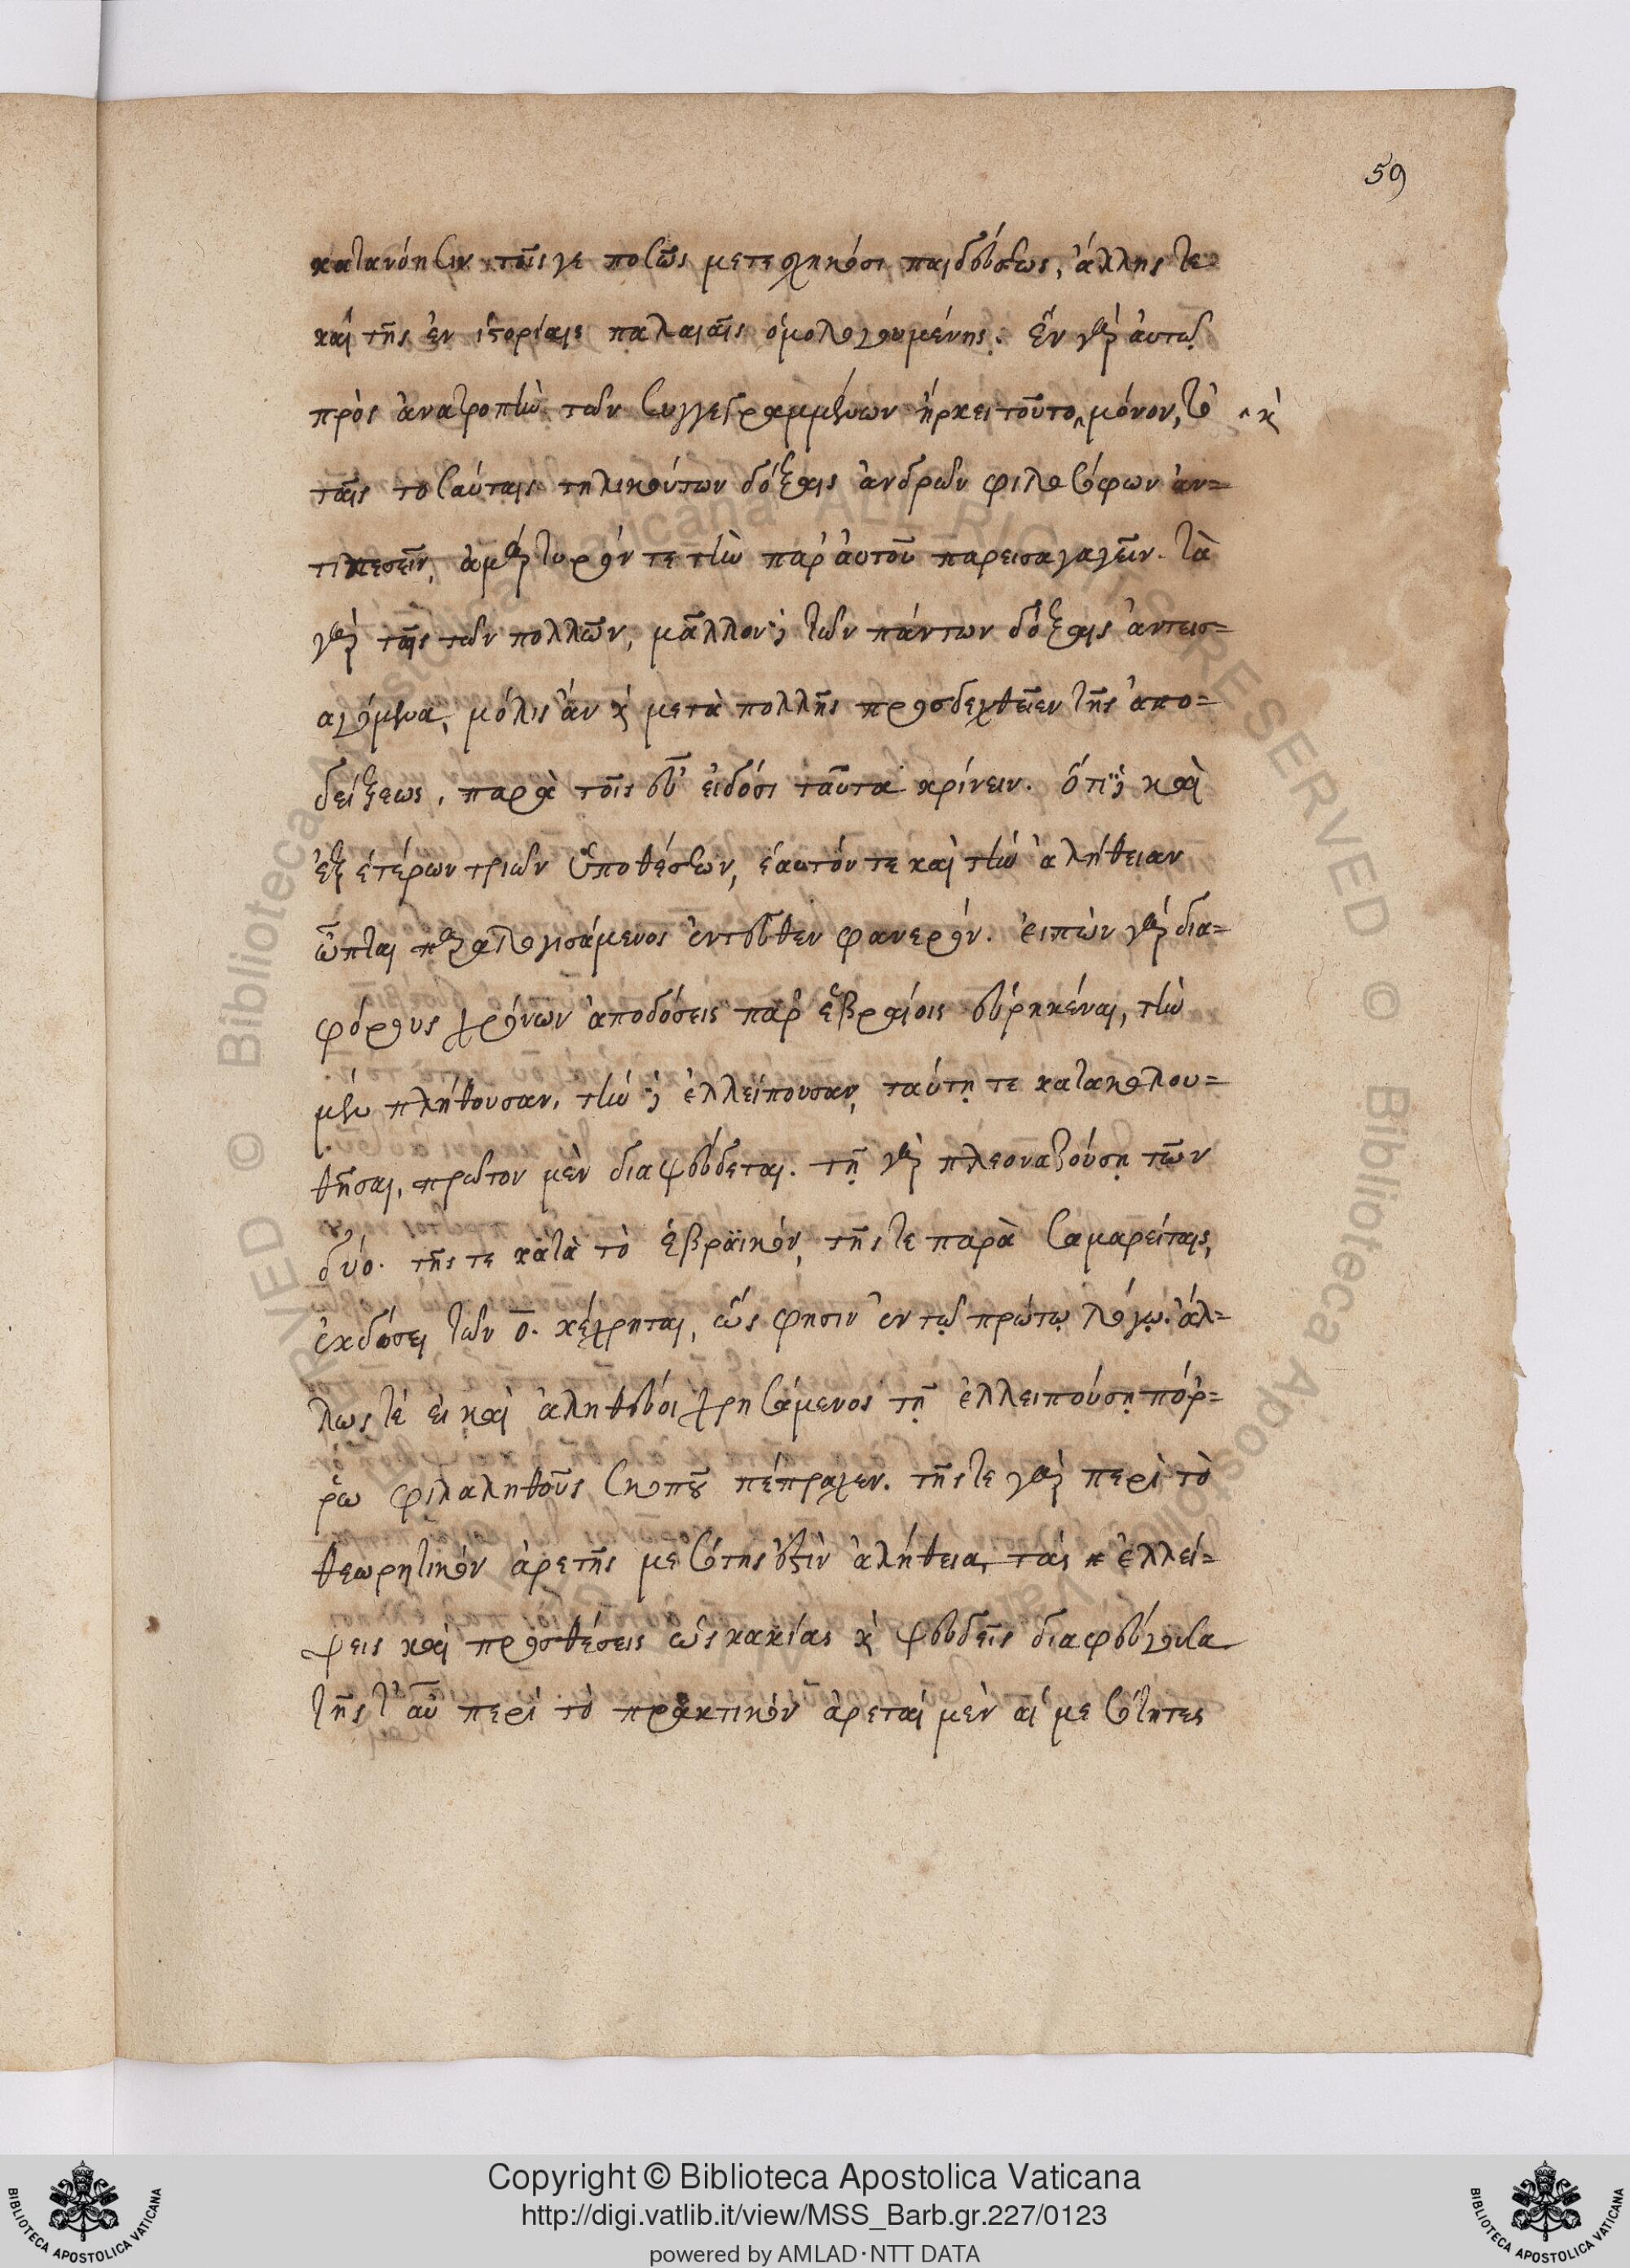 59
κατανόησιν τοῖς γε ποσῶς μετεσχηκόσι παιδεύσεως, ἄλλης τε
καὶ τῆς ἐν ἱστορίαις παλαιαῖς ὁμολογουμένης. ἓν γὰρ αὐτῷ
πρὸς ἀνατροπὴν τῶν συγγεγραμμένων ἤρκει τοῦτο ‸ μόνον, τὸ ‸ κ̀
ταῖς τοσαύταις τηλικούτων δόξαις ἀνδρῶν φιλοσόφων ἀν=
τιπεσεῖν, ἀμάρτυρόν τε τὴν παρ' αὐτοῦ παρεισαγαγεῖν. τὰ
γὰρ ταῖς τῶν πολλῶν, μᾶλλον δὲ τῶν πάντων δόξαις ἀντεισ=
αγόμενα, μόλις ἂν κ̀ μετὰ πολλῆς προσδεχθεῖεν τῆς ἀπο=
δείξεως, παρὰ τοῖς εὖ εἰδόσι ταῦτα κρίνειν. ὅτι δὲ καὶ
ἐξ ἑτέρων τριῶν ὑποθέσεων, ἑαυτόν τε καὶ τὴν ἀλήθειαν
ὦπται παραλογισάμενος ἐντεῦθεν φανερόν. εἰπὼν γὰρ δια=
φόρους χρόνων ἀποδόσεις παρ' ἑβραίοις εὑρηκέναι, τὴν
μὲν πλήθουσαν, τὴν δὲ ἐλλείπουσαν, ταύτῃ τε κατακολου=
θῆσαι, πρῶτον μὲν διαψεύδεται. τῇ γὰρ πλεοναζούσῃ τῶν
δύο. τῆς τε κατὰ τὸ ἑβραϊκόν, τῆς τε παρὰ σαμαρείταις,
ἐκδόσει τῶν ο̄. κέχρηται, ὥς φησιν ἐν τῷ πρώτῳ λόγῳ. ἄλ=
λως τέ εἰ καὶ ἀληθεύοι χρησάμενος τῇ ἐλλειπούσῃ πόρ=
ρω φιλαλήθους σκοποῦ πέπραχεν. τῆς τε γὰρ περὶ τὸ
θεωρητικόν ἀρετῆς μεσότης ἐστὶν ἀλήθεια, τὰς ἐλλεί=
ψεις καὶ προσθέσεις ὡς κακίας κ̀ ψευδεῖς διαφεύγουσα
τῆς τ' αὖ περὶ τὸ πρακτικόν ἀρεταὶ μὲν αἱ μεσότητες
Copyright © Biblioteca Apostolica Vaticana
http://digi.vatlib.it/view/MSS_Barb.gr.227/0123
powered by AMLAD·NTT DATA